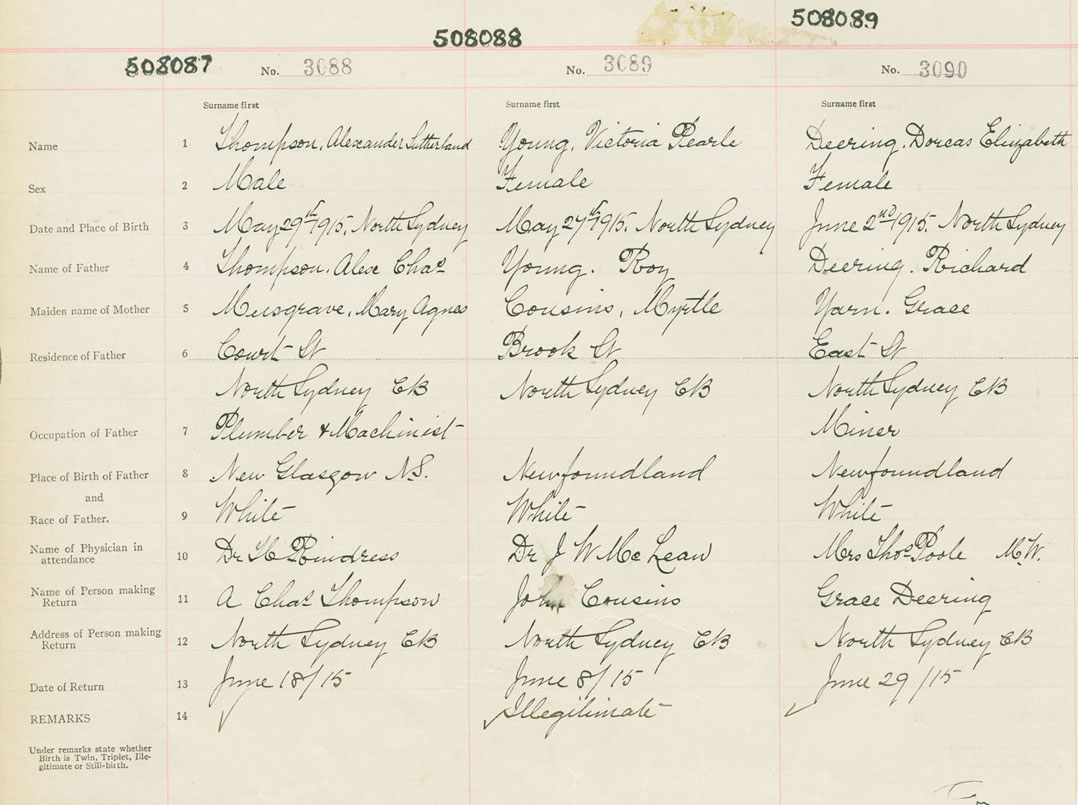 508087 508088 508089
No. 3088 No. 3089 No. 3090
Surname first Surname first Surname first
Name 1 Thompson, Alexander Sutherland Young, Victoria Pearle Deering, Dorcas Elizabeth
Sex 2 Male Female Female
Date and Place of Birth 3 May 29th 1915, North Sydney May 27th 1915. North Sydney June 2nd 1915. North Sydney
Name of Father 4 Thompson. Alex Chas Young. Roy Deering. Richard
Maiden name of Mother 5 Musgrave, Mary Agnes Cousins, Myrtle Yarn. Grace
Residence of Father 6 Court St Brook St East St
North Sydney CB North Sydney CB North Sydney CB
Occupation of Father 7 Plumber & Machinist Miner
Place of Birth of Father 8 New Glasgow N.S. Newfoundland Newfoundland
and
Race of Father. 9 White White White
Name of Physician in attendance 10 Dr Rindress Dr J W McLean Mrs Thos Poole M.W.
Name of Person making Return 11 A Chas Thompson John Cousins Grace Deering
Address of Person making Return 12 North Sydney CB North Sydney CB North Sydney CB
Date of Return 13 June 18/15 June 8/15 June 29/15
REMARKS 14 Illegitimate
Under remarks state whether
Birth is Twin, Triplet, Ille-
gitimate or Still-birth.